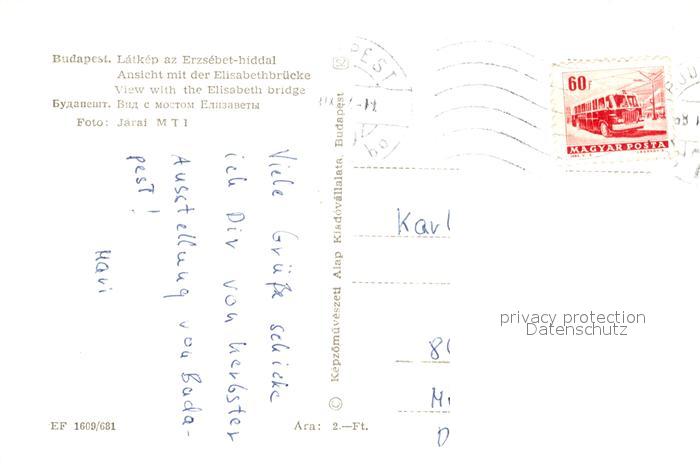 Budapest. Látkép az Erzsébet-híddal
Ansicht mit der Elisabethbrücke
View with the Elisabeth bridge
Будапешт. Вид с мостом Елизаветы
Foto: Járai MTI
Viele Grüße schicke
ich Dir von Herbster
Ausstellung von Buda-
pest!
EF 1609/681
Ára: 2.—Ft.
© Képzőművészeti Alap Kiadóvállalata, Budapest
60f
MAGYAR POSTA
Karl
privacy protection
Datenschutz